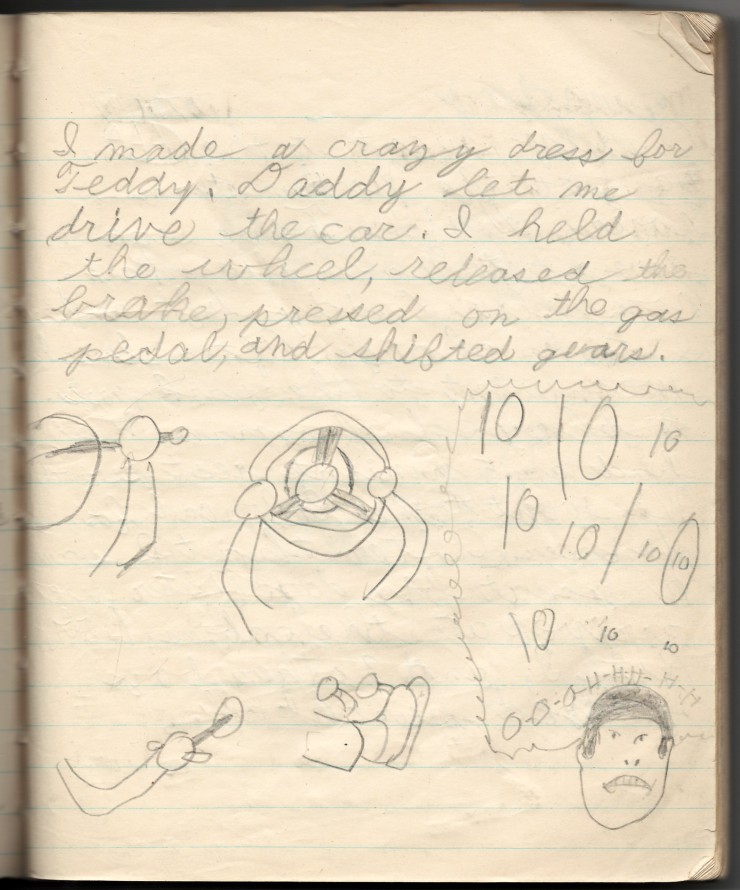 I made a crazy dress for
Teddy. Daddy let me
drive the car. I held
the wheel, released the
brake, pressed on the gas
pedal, and shifted gears.
10 10 10
10 10 10 10
10 10 10
O-O-O-H-H-H-H-H